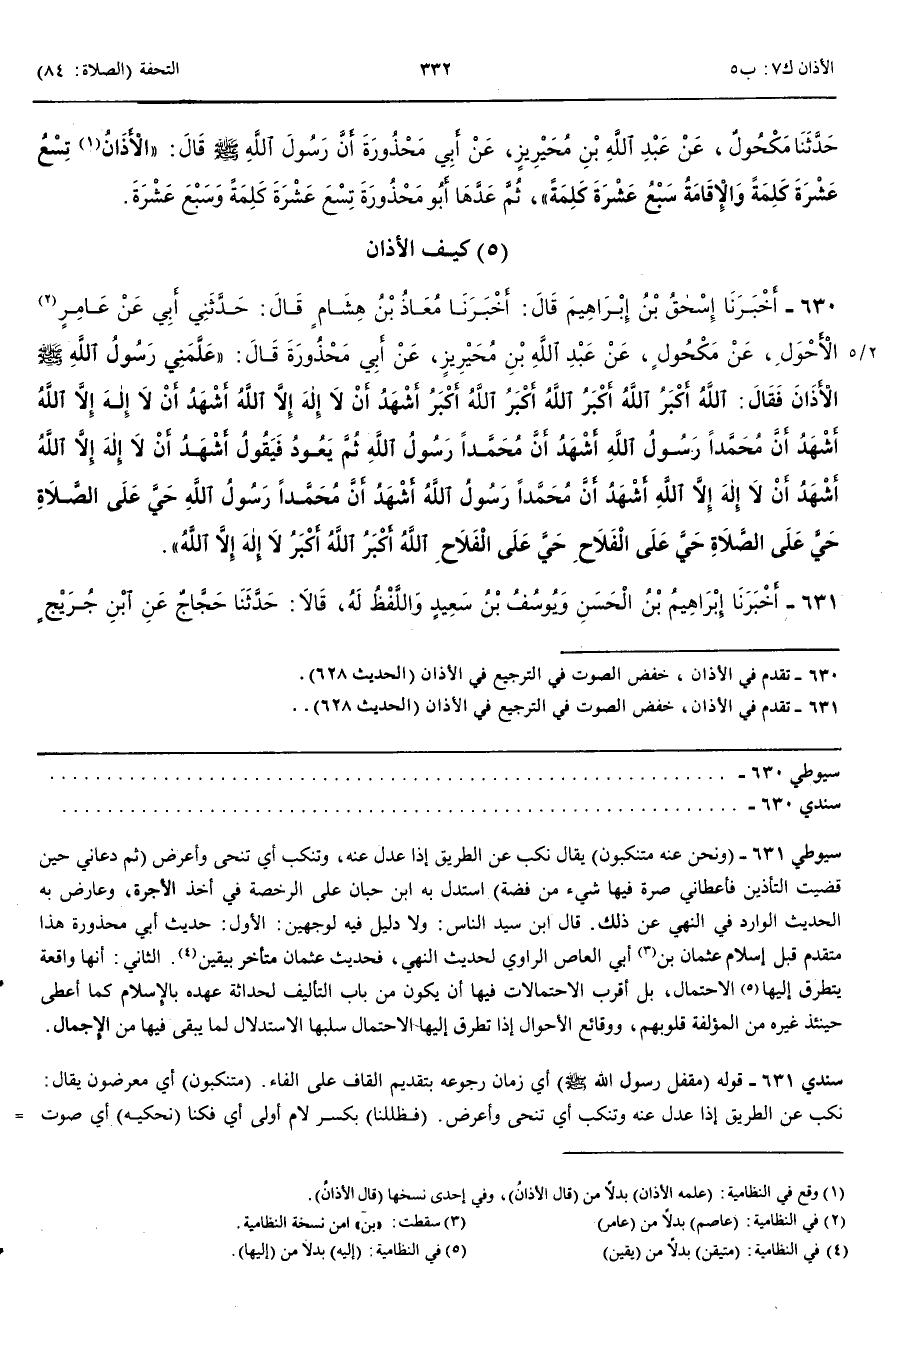 الأذان ك٧: ب٥ ٣٣٢ التحفة (الصلاة: ٨٤)
حَدَّثَنَا مَكْحُولٌ، عَنْ عَبْدِ اللَّهِ بْنِ مُحَيْرِيزٍ، عَنْ أَبِي مَحْذُورَةَ أَنَّ رَسُولَ اللَّهِ ﷺ قَالَ: «الْأَذَانُ(١) تِسْعُ
عَشْرَةَ كَلِمَةً وَالْإِقَامَةُ سَبْعُ عَشْرَةَ كَلِمَةً»، ثُمَّ عَدَّهَا أَبُو مَحْذُورَةَ تِسْعَ عَشْرَةَ كَلِمَةً وَسَبْعَ عَشْرَةَ.
(٥) كيف الأذان
٦٣٠ ـ أَخْبَرَنَا إِسْحٰقُ بْنُ إِبْرَاهِيمَ قَالَ: أَخْبَرَنَا مُعَاذُ بْنُ هِشَامٍ قَالَ: حَدَّثَنِي أَبِي عَنْ عَامِرٍ(٢)
٥/٢ الْأَحْوَلِ، عَنْ مَكْحُولٍ، عَنْ عَبْدِ اللَّهِ بْنِ مُحَيْرِيزٍ، عَنْ أَبِي مَحْذُورَةَ قَالَ: «عَلَّمَنِي رَسُولُ اللَّهِ ﷺ
الْأَذَانَ فَقَالَ: اللَّهُ أَكْبَرُ اللَّهُ أَكْبَرُ اللَّهُ أَكْبَرُ اللَّهُ أَكْبَرُ أَشْهَدُ أَنْ لَا إِلٰهَ إِلَّا اللَّهُ أَشْهَدُ أَنْ لَا إِلٰهَ إِلَّا اللَّهُ
أَشْهَدُ أَنَّ مُحَمَّداً رَسُولُ اللَّهِ أَشْهَدُ أَنَّ مُحَمَّداً رَسُولُ اللَّهِ ثُمَّ يَعُودُ فَيَقُولُ أَشْهَدُ أَنْ لَا إِلٰهَ إِلَّا اللَّهُ
أَشْهَدُ أَنْ لَا إِلٰهَ إِلَّا اللَّهِ أَشْهَدُ أَنَّ مُحَمَّداً رَسُولُ اللَّهُ أَشْهَدُ أَنَّ مُحَمَّداً رَسُولُ اللَّهِ حَيَّ عَلَى الصَّلَاةِ
حَيَّ عَلَى الصَّلَاةِ حَيَّ عَلَى الْفَلَاحِ حَيَّ عَلَى الْفَلَاحِ اللَّهُ أَكْبَرُ اللَّهُ أَكْبَرُ لَا إِلٰهَ إِلَّا اللَّهُ».
٦٣١ ـ أَخْبَرَنَا إِبْرَاهِيمُ بْنُ الْحَسَنِ وَيُوسُفُ بْنُ سَعِيدٍ وَاللَّفْظُ لَهُ، قَالَا: حَدَّثَنَا حَجَّاجٌ عَنِ ابْنِ جُرَيْجٍ
٦٣٠ ـ تقدم في الأذان، خفض الصوت في الترجيع في الأذان (الحديث ٦٢٨).
٦٣١ ـ تقدم في الأذان، خفض الصوت في الترجيع في الأذان (الحديث ٦٢٨). .
سيوطي ٦٣٠ ـ . . . . . . . . . . . . . . . . . . . . . . . . . . . . . .
سندي ٦٣٠ ـ . . . . . . . . . . . . . . . . . . . . . . . . . . . . . .
سيوطي ٦٣١ ـ (ونحن عنه متنكبون) يقال نكب عن الطريق إذا عدل عنه، وتنكب أي تنحى وأعرض (ثم دعاني حين
قضيت التأذين فأعطاني صرة فيها شيء من فضة) استدل به ابن حبان على الرخصة في أخذ الأجرة، وعارض به
الحديث الوارد في النهي عن ذلك. قال ابن سيد الناس: ولا دليل فيه لوجهين: الأول: حديث أبي محذورة هذا
متقدم قبل إسلام عثمان بن(٣) أبي العاص الراوي لحديث النهي، فحديث عثمان متأخر بيقين(٤). الثاني: أنها واقعة
يتطرق إليها(٥) الاحتمال، بل أقرب الاحتمالات فيها أن يكون من باب التأليف لحداثة عهده بالإسلام كما أعطى
حينئذ غيره من المؤلفة قلوبهم، ووقائع الأحوال إذا تطرق إليها الاحتمال سلبها الاستدلال لما يبقى فيها من الإجمال.
سندي ٦٣١ ـ قوله (مقفل رسول الله ﷺ) أي زمان رجوعه بتقديم القاف على الفاء. (متنكبون) أي معرضون يقال:
نكب عن الطريق إذا عدل عنه وتنكب أي تنحى وأعرض. (فظللنا) بكسر لام أولى أي فكنا (نحكيه) أي صوت =
(١) وقع في النظامية: (علمه الأذان) بدلاً من (قال الأذانُ)، وفي إحدى نسخها (قال الأذانُ).
(٢) في النظامية: (عاصم) بدلاً من (عامر) (٣) سقطت: «بن» امن نسخة النظامية.
(٤) في النظامية: (متيقن) بدلاً من (يقين) (٥) في النظامية: (إليه) بدلاً من (إليها).